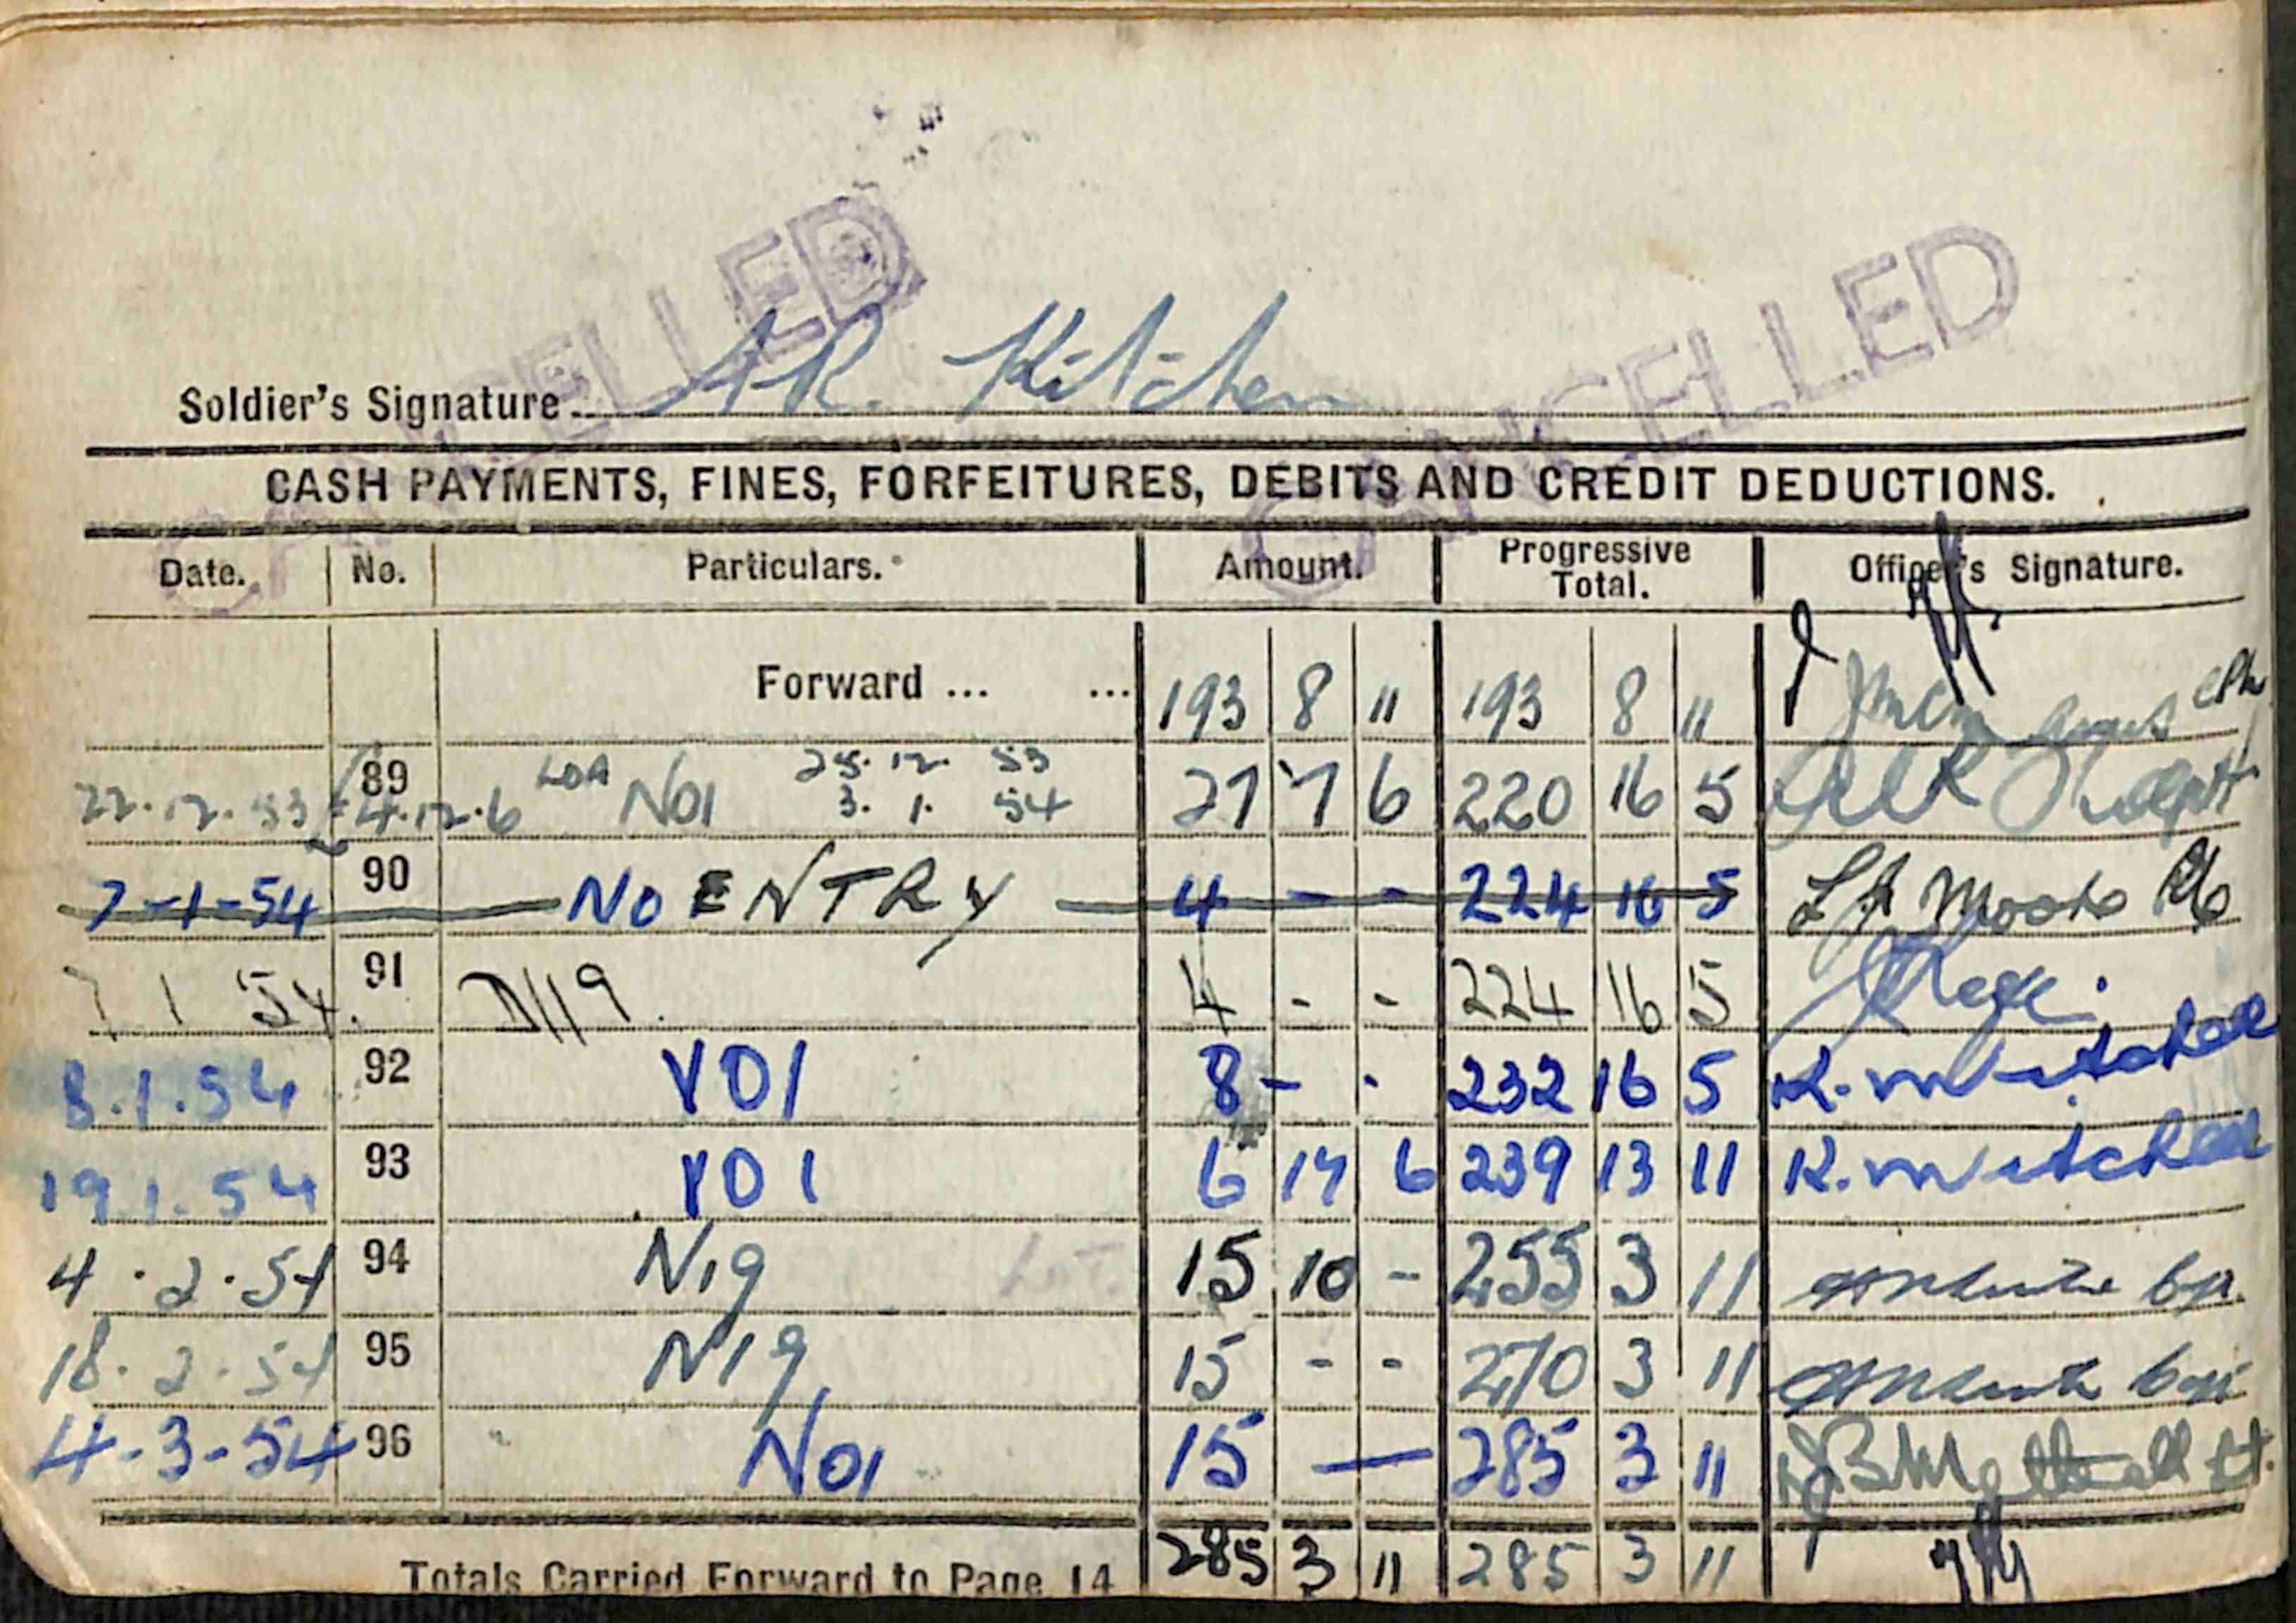 CANCELLED CANCELLED
Soldier's Signature A R. Kitchen
CASH PAYMENTS, FINES, FORFEITURES, DEBITS AND CREDIT DEDUCTIONS.
Date. No. Particulars. Amount. Progressive Total. Officer's Signature.
Forward ... ... 193 8 11 193 8 11
22.12.53 89 4.12.6 LOA N01 25.12.53 3.1.54 27 7 6 220 16 5
7-1-54 90 NO ENTRY 4 - - 224 16 5 Moore
7 1 54. 91 D119. 4 - - 224 16 5
8.1.54 92 V01 8 - - 232 16 5 K.
19.1.54 93 V01 6 17 6 239 13 11 K.
4.2.54 94 N19 15 10 - 255 3 11
18.2.54 95 N19 15 - - 270 3 11
4-3-54 96 N01 15 — 285 3 11 Lt.
Totals Carried Forward to Page 14 285 3 11 285 3 11